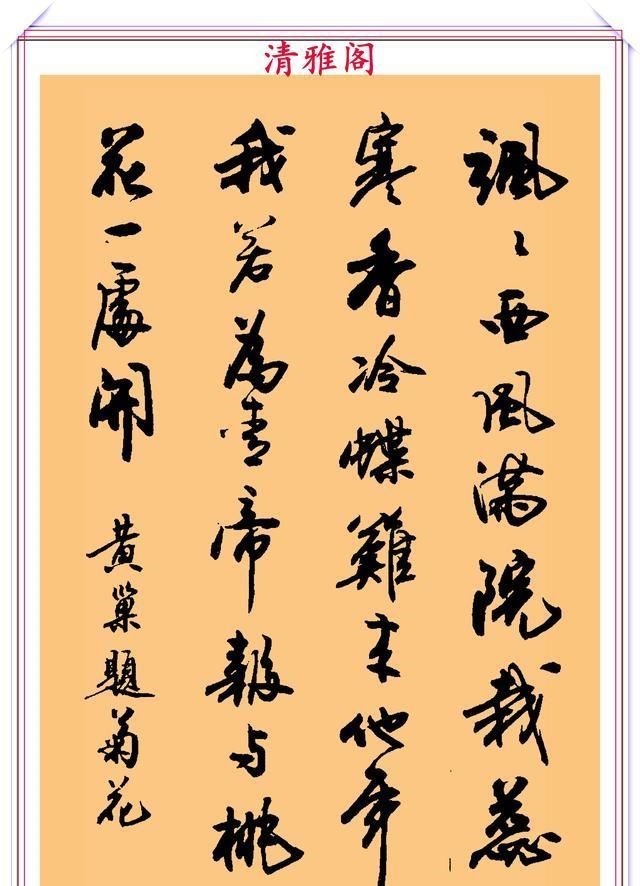 清雅阁
飒〻西风满院栽蕊
寒香冷蝶難来他年
我若為青帝報与桃
花一處開
黄巢題菊花